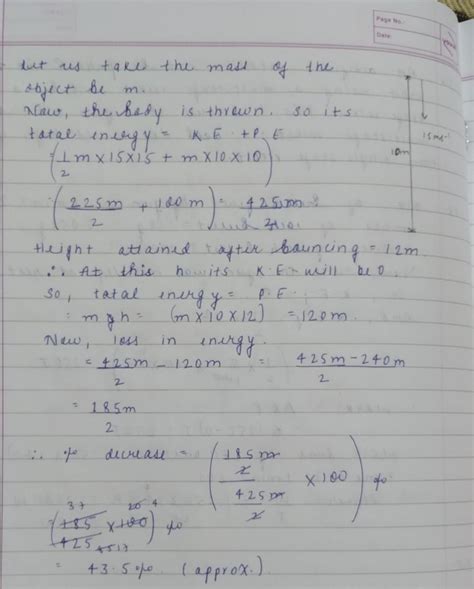 Page No.:
Date:
Let us take the mass of the
object be m.
Now, the body is thrown. So its
total energy = K.E + P.E
= (1/2 m × 15 × 15 + m × 10 × 10)
15 ms⁻¹
10m
(225m/2 + 100m) = 425m/2
Height attained after bouncing = 12m.
∴ At this its K.E. will be 0.
So, total energy = P.E.
= mgh = (m × 10 × 12) = 120m.
Now, loss in energy.
= 425m/2 - 120m = 425m - 240m/2
= 185m/2
∴ % decrease = (185m/2 / 425m/2 × 100) %
= (185/425 × 100) %
= 43.5% (approx.)